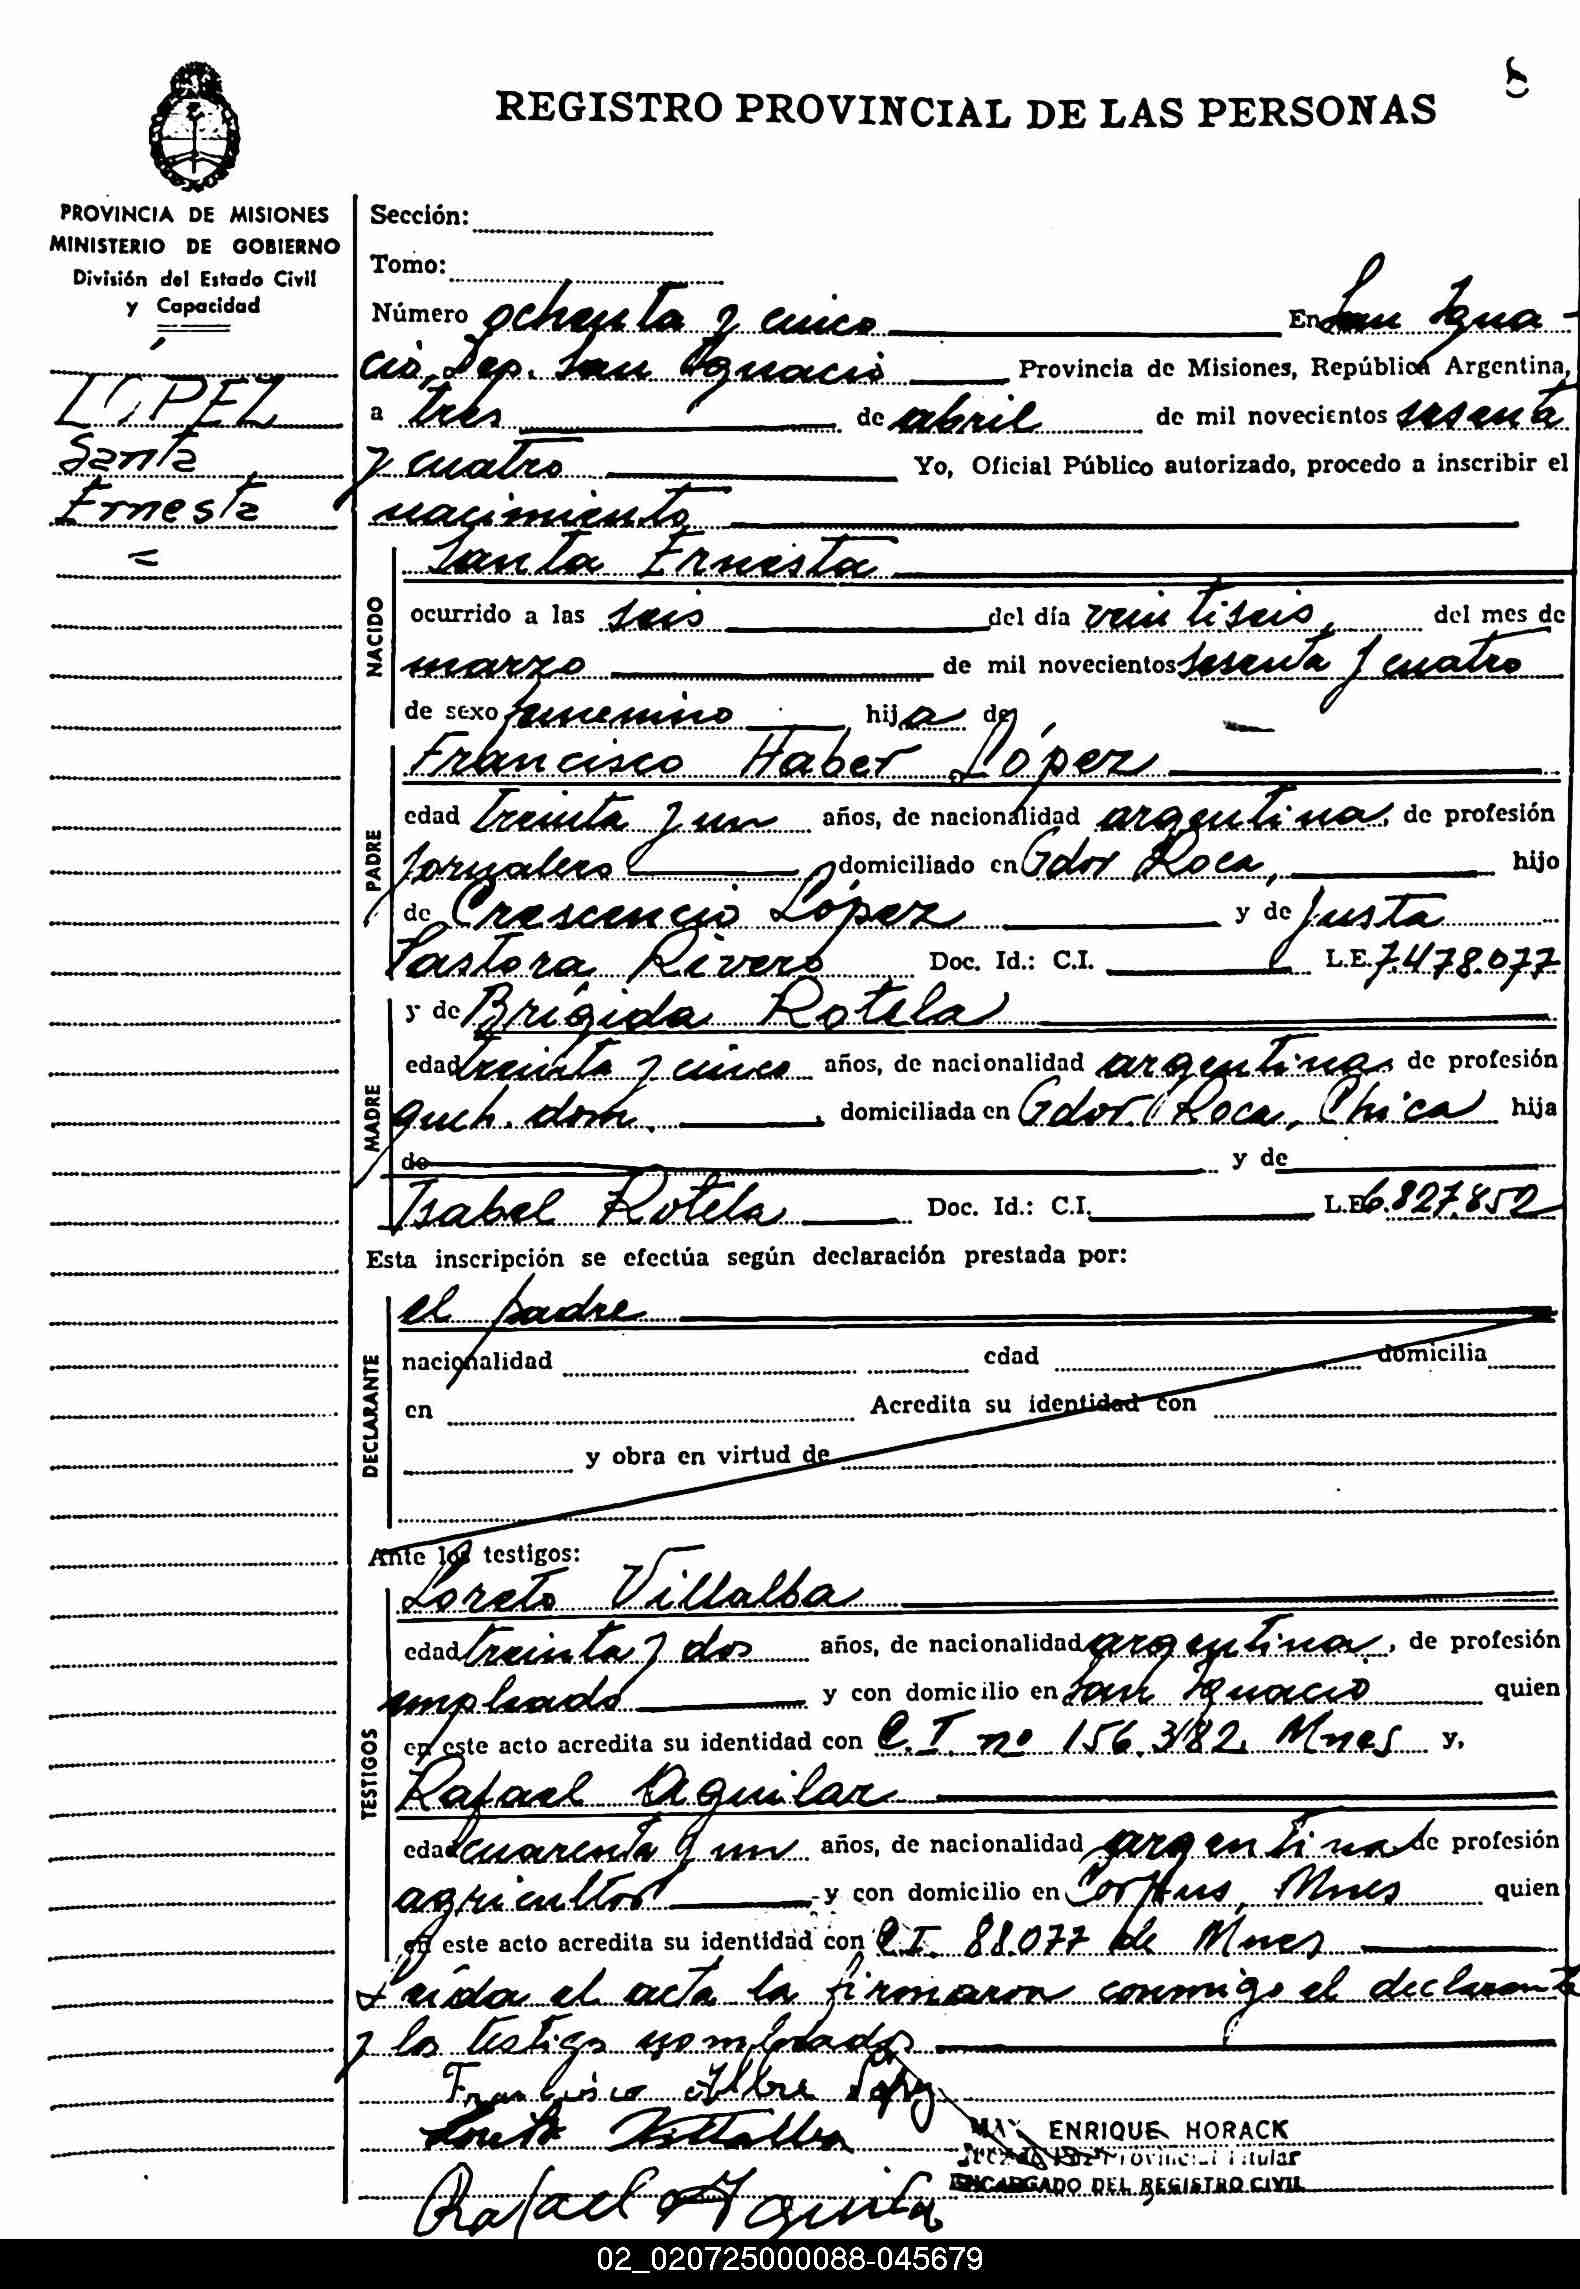 REGISTRO PROVINCIAL DE LAS PERSONAS
8
PROVINCIA DE MISIONES
MINISTERIO DE GOBIERNO
División del Estado Civil
y Capacidad
LÓPEZ
Santa
Ernesta
=
Sección:
Tomo:
Número ochenta y cinco En San Igna-
cio, Dep. San Ignacio Provincia de Misiones, República Argentina,
a tres de abril de mil novecientos sesenta
y cuatro Yo, Oficial Público autorizado, procedo a inscribir el
nacimiento
NACIDO
Santa Ernesta
ocurrido a las seis del día veintiseis, del mes de
marzo de mil novecientos sesenta y cuatro
de sexo femenino hija de
PADRE
Francisco Haber López
edad treinta y un años, de nacionalidad argentina, de profesión
jornalero domiciliado en Gdor Roca, hijo
de Crescencio López y de Justa
Pastora Rivero Doc. Id.: C.I. L.E. 7.478.077
MADRE
y de Brígida Rotela
edad treinta y cinco años, de nacionalidad argentina, de profesión
queh. dom. , domiciliada en Gdor. Roca, Chica hija
de y de
Isabel Rotela Doc. Id.: C.I. L.E. 6.827.852
Esta inscripción se efectúa según declaración prestada por:
DECLARANTE
el padre
nacionalidad edad domicilia
en Acredita su identidad con
y obra en virtud de
Ante los testigos:
TESTIGOS
Loreto Villalba
edad treinta y dos años, de nacionalidad argentina, de profesión
empleado y con domicilio en San Ignacio quien
en este acto acredita su identidad con C.I. nº 156.382. Mnes y,
Rafael Aguilar
edad cuarenta y un años, de nacionalidad argentina de profesión
agricultor y con domicilio en Corpus, Mnes quien
en este acto acredita su identidad con C.I. 88.077 de Mnes
Leída el acta la firmaron conmigo el declarante
y los testigo nombrados
Francisco López
Loreto Villalba
ENRIQUE HORACK
Provincial Titular
ENCARGADO DEL REGISTRO CIVIL
Rafael Aguilar
02_020725000088-045679